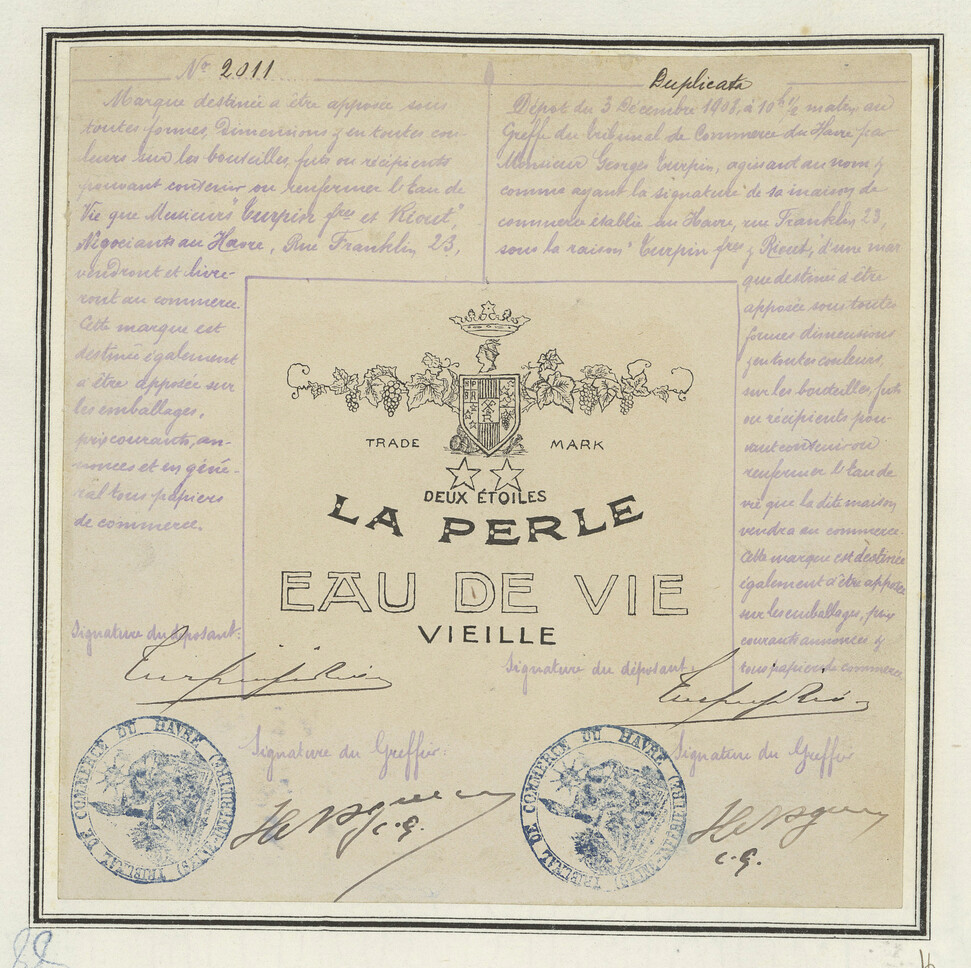 No 2011
Marque destinée à être apposée sous
toutes formes, Dimensions & en toutes cou-
leurs sur les bouteilles, futs ou récipients
pouvant contenir ou renfermer l'Eau de
Vie que Messieurs "Turpin fres et Rioult,"
Négociants au Havre, Rue Franklin 23,
vendront et livre-
ront au commerce.
Cette marque est
destinée également
à être apposée sur
les emballages,
prix courants, an-
nonces et en géné-
ral tous papiers
de commerce.
Signature du déposant:
Duplicata
Dépôt du 3 Décembre 1908, à 10h 1/2 matin, au
Greffe du Tribunal de Commerce du Havre par
Monsieur Georges Turpin, agissant au nom &
comme ayant la signature de sa maison de
commerce établie au Havre, rue Franklin, 23,
sous la raison "Turpin fres & Rioult", d'une mar
que destinée à être
apposée sous toutes
formes dimensions
& en toutes couleurs,
sur les bouteilles, futs
ou récipients pou-
vant contenir ou
renfermer l'Eau de
vie que la dite maison
vendra au commerce.
Cette marque est destinée
également d'être apposée
sur les emballages, prix
courants annonces &
tous papiers de commerce
Signature du déposant:
TRADE MARK
DEUX ÉTOILES
LA PERLE
EAU DE VIE
VIEILLE
Signature du Greffier:
C.G.
TRIBUNAL DE COMMERCE DU HAVRE
Signature du Greffier
C.G.
TRIBUNAL DE COMMERCE DU HAVRE